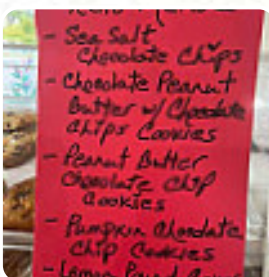 - Sea Salt
Chocolate Chips
- Chocolate Peanut
Butter w/ Chocolate
Chips Cookies
- Peanut Butter
Chocolate Chip
Cookies
- Pumpkin Chocolate
Chip Cookies
- Lemon